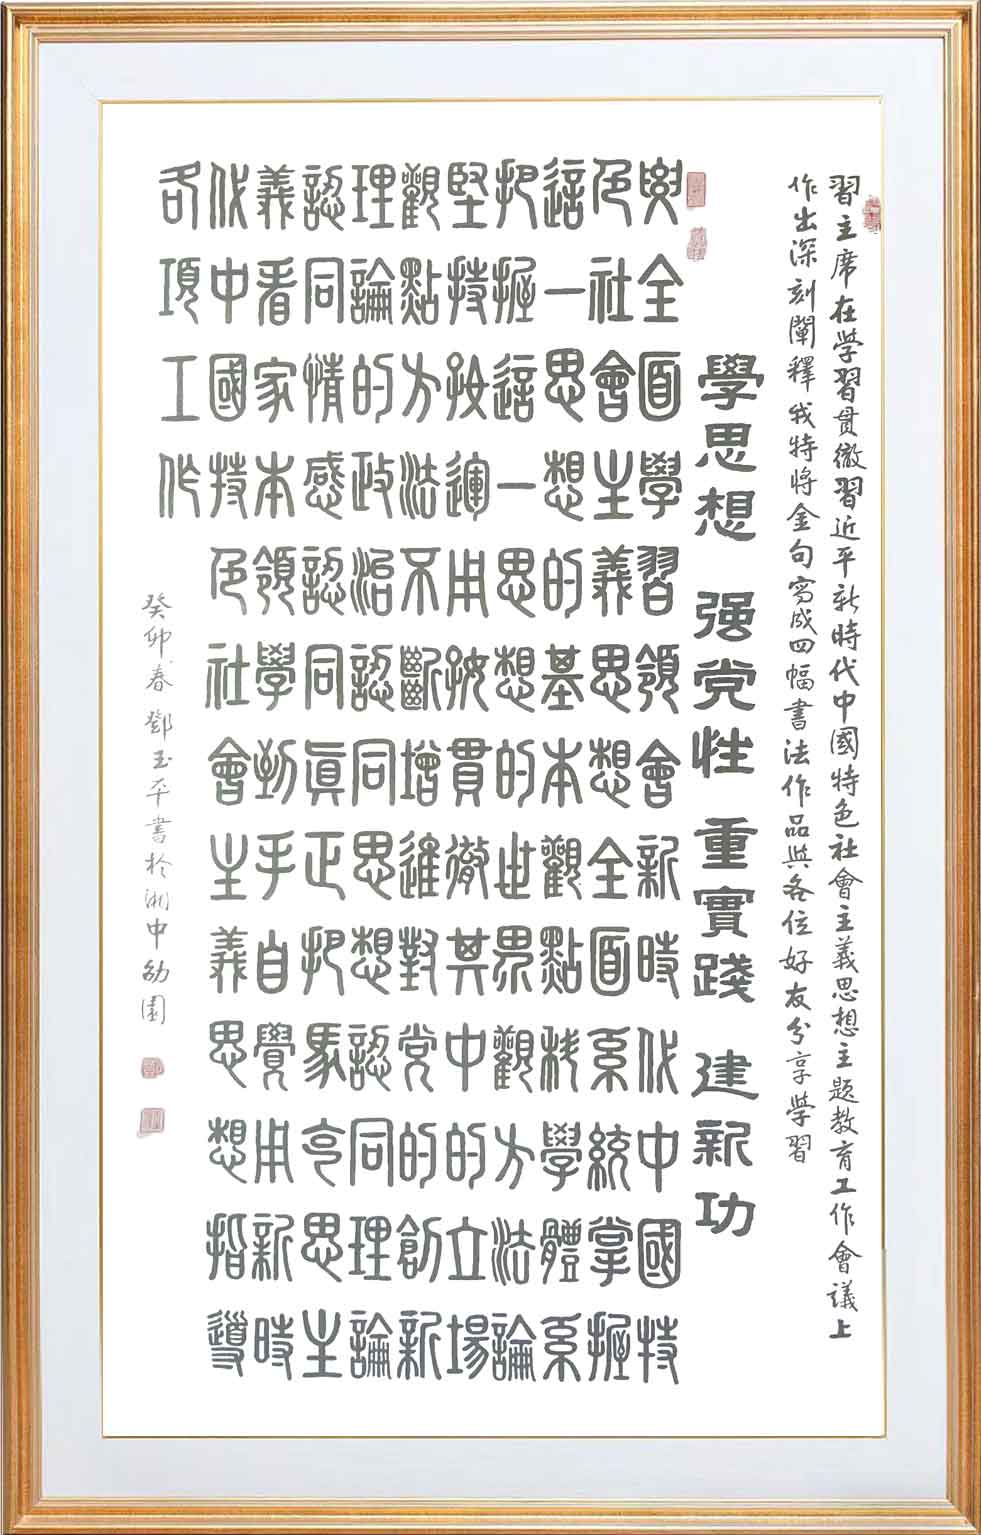 習主席在学習貫徹習近平新時代中國特色社會主義思想主題教育工作會議上
作出深刻闡釋我特将金句寫成四幅書法作品與各位好友分享學習
學思想 强党性 重實踐 建新功
要全面學習領會新時代中國特
色社會主義思想全面系統掌握
這一思想的基本觀點科學體系
把握這一思想的世界觀方法論
堅持好運用好貫徹其中的立場
觀點方法不斷增進對党的創新
理論的政治認同思想認同理論
認同情感認同真正把馬克思主
義看家本領學到手自覺用新時
代中國特色社會主義思想指導
各項工作
癸卯春 鄧玉平書於湘中幼園